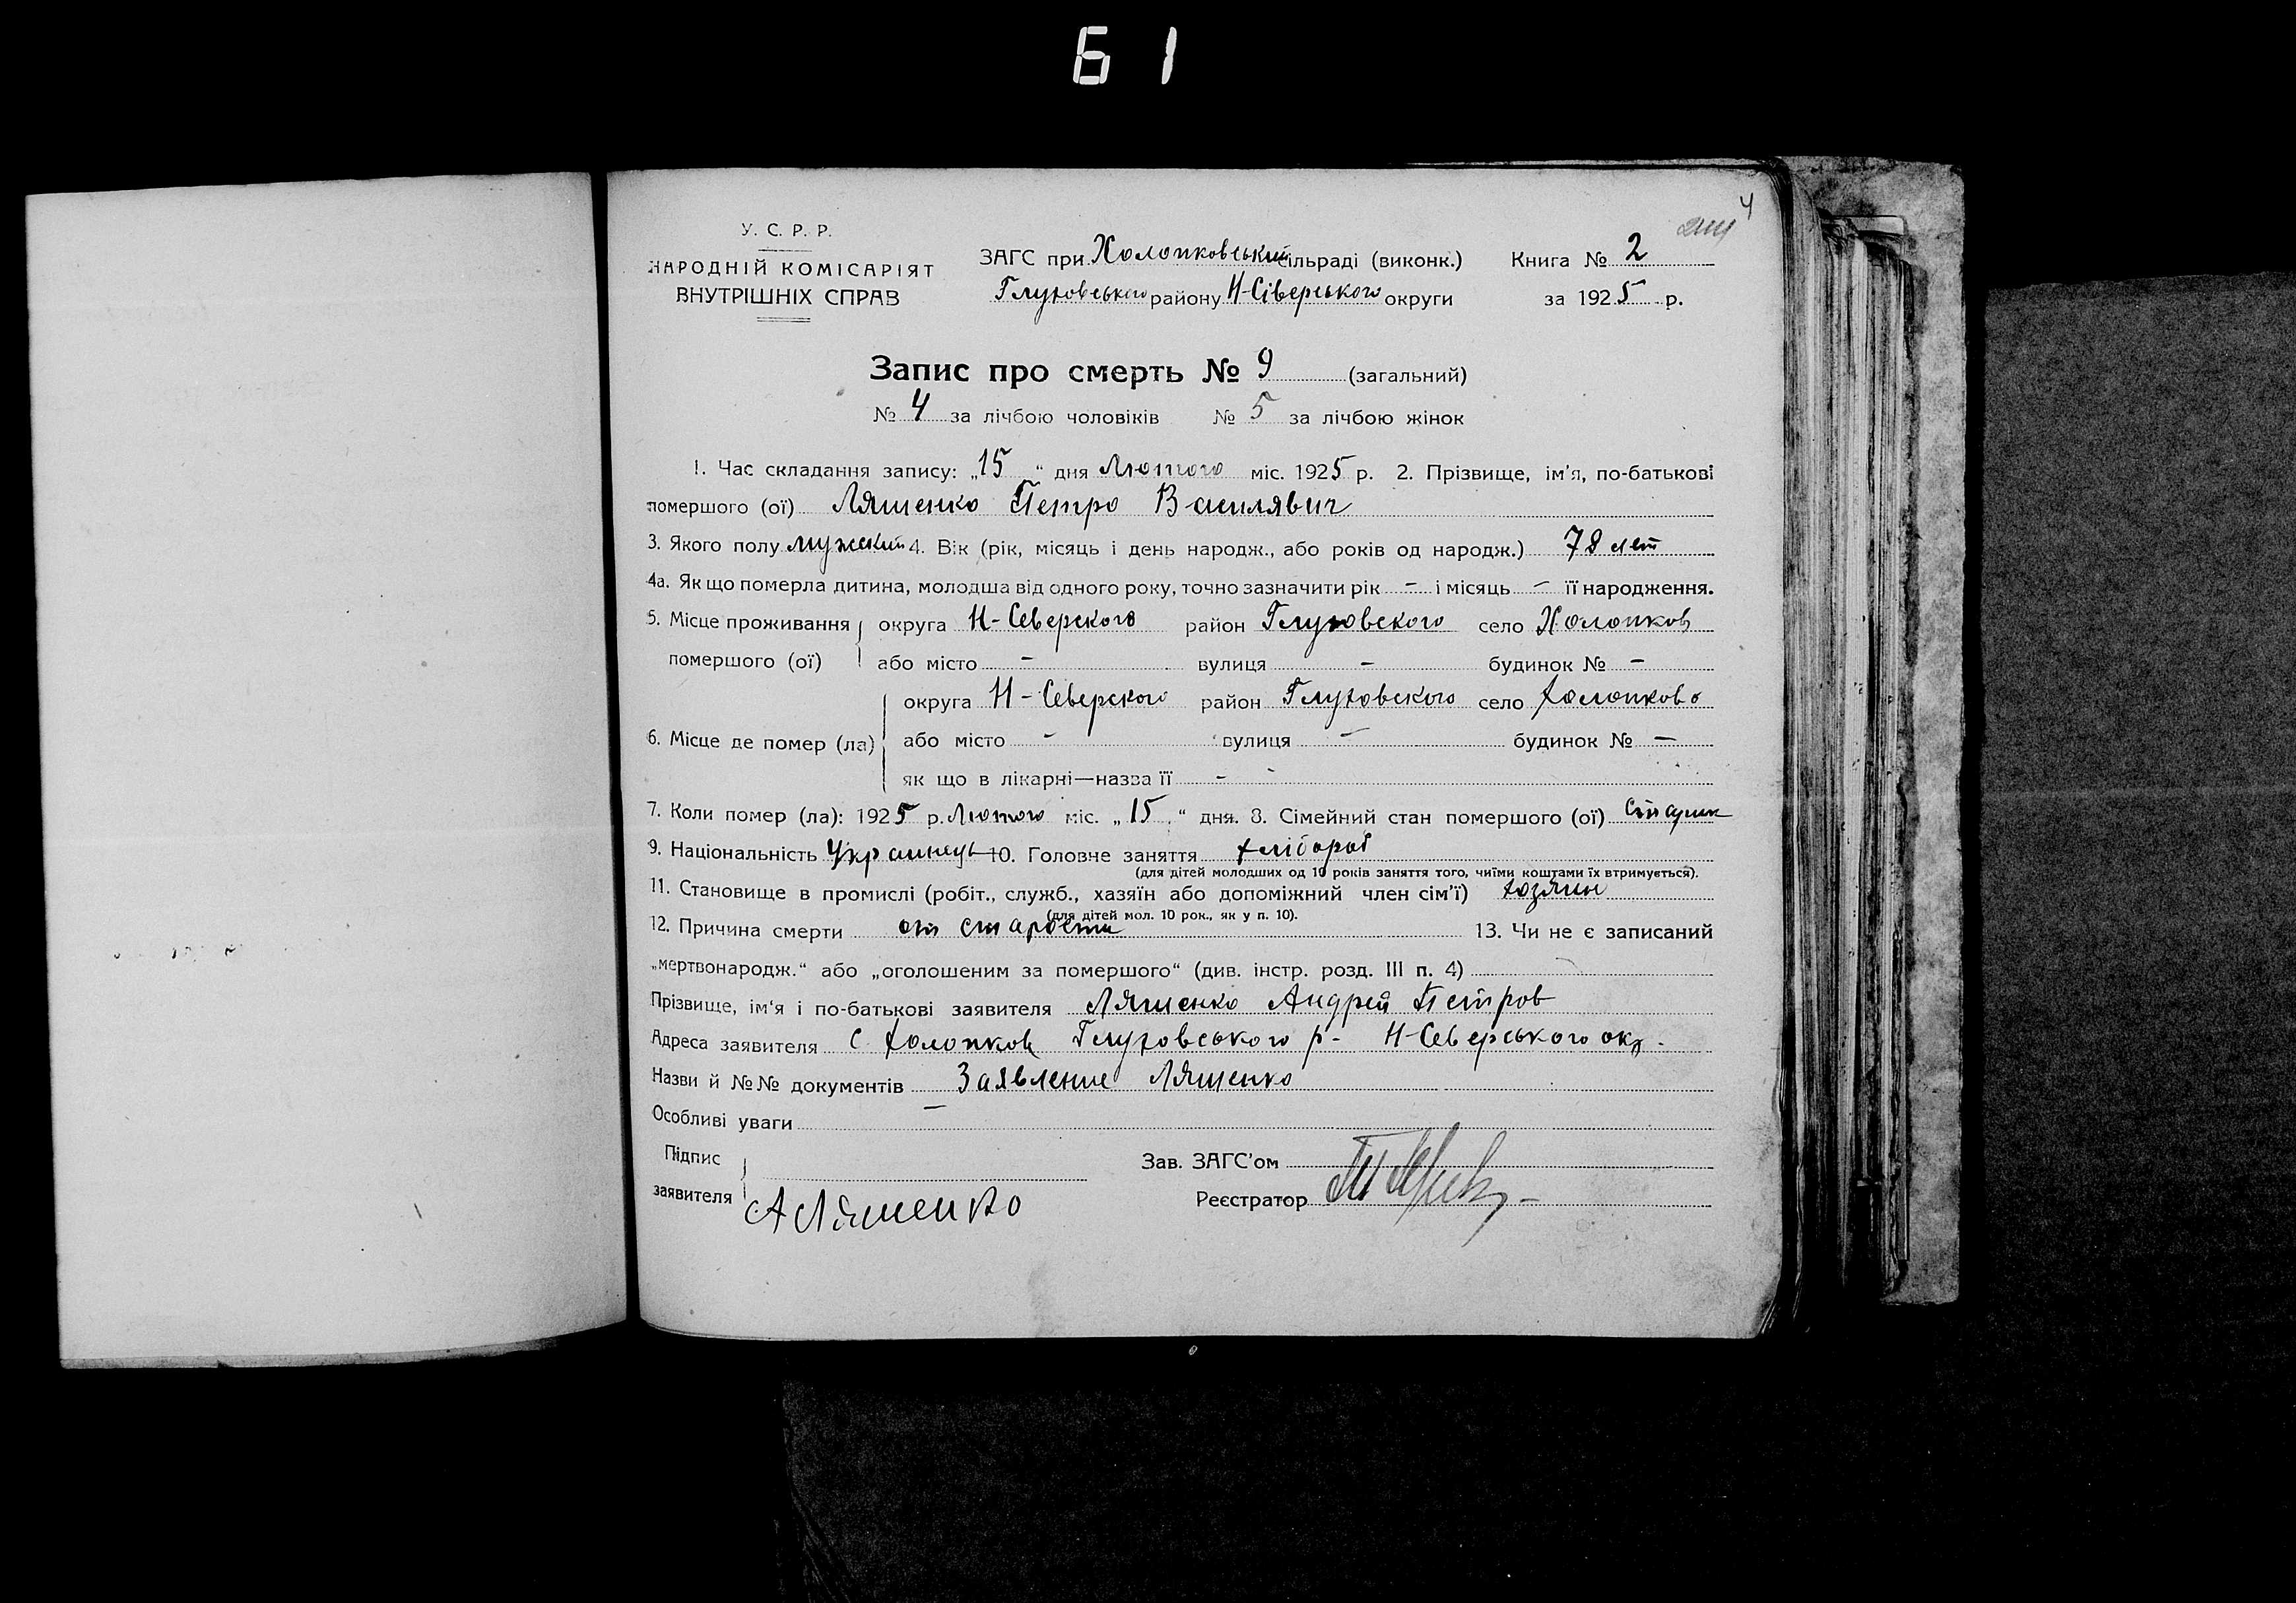 61
4
У. С. Р. Р.
НАРОДНІЙ КОМІСАРІЯТ
ВНУТРІШНІХ СПРАВ
ЗАГС при Холопковський сільраді (виконк.) Книга № 2
Глуховського району Н-Сіверського округи за 1925 р.
Запис про смерть № 9 (загальний)
№ 4 за лічбою чоловіків № 5 за лічбою жінок
1. Час складання запису: „15“ дня Лютого міс. 1925 р. 2. Прізвище, ім'я, по-батькові
помершого (ої) Ляшенко Петро Василявич
3. Якого полу мужский 4. Вік (рік, місяць і день народж., або років од народж.) 78 лет
4а. Як що померла дитина, молодша від одного року, точно зазначити рік - і місяць - її народження.
5. Місце проживання округа Н-Северского район Глуховского село Холопков
помершого (ої) або місто - вулиця - будинок № -
округа Н-Северского район Глуховского село Холопково
6. Місце де помер (ла) або місто - вулиця - будинок № -
як що в лікарні—назва її - -
7. Коли помер (ла): 1925 р. Лютого міс. „15“ дня. 8. Сімейний стан помершого (ої) старик
9. Національність Украинець 10. Головне заняття хлібороб
(для дітей молодших од 10 років заняття того, чиїми коштами їх втримується).
11. Становище в промислі (робіт., служб., хазяїн або допоміжний член сім'ї) хозяин
(для дітей мол. 10 рок., як у п. 10).
12. Причина смерти от старости 13. Чи не є записаний
„мертвонародж.“ або „оголошеним за помершого“ (див. інстр. розд. III п. 4)
Прізвище, ім'я і по-батькові заявителя Ляшенко Андрей Петров
Адреса заявителя с. Холопков Глуховського р- Н-Северського окр.
Назви й №№ документів Заявление Ляшенко
Особливі уваги -
Підпис Зав. ЗАГС'ом
заявителя А Ляшенко Реєстратор